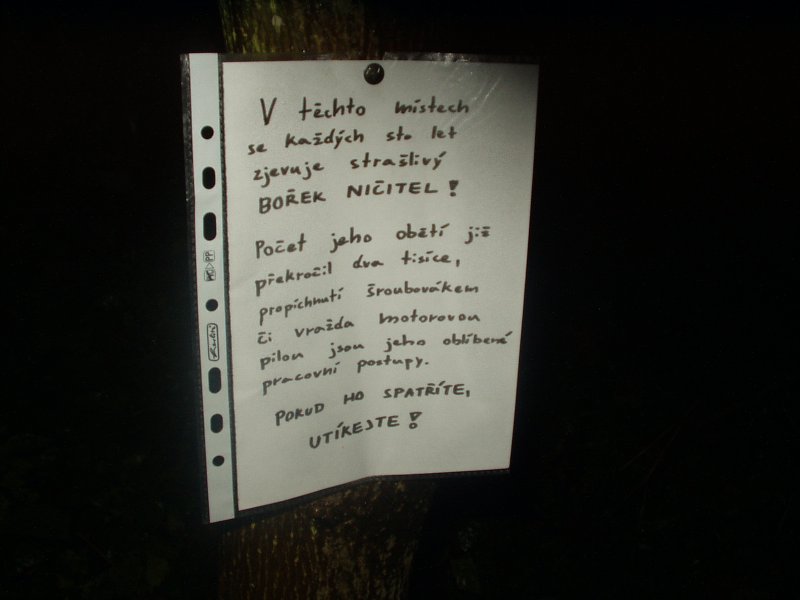 V těchto místech
se každých sto let
zjevuje strašlivý
BOŘEK NIČITEL!
Počet jeho obětí již
překročil dva tisíce,
propíchnutí šroubovákem
či vražda motorovou
pilou jsou jeho oblíbené
pracovní postupy.
POKUD HO SPATŘÍTE,
UTÍKEJTE!
PP